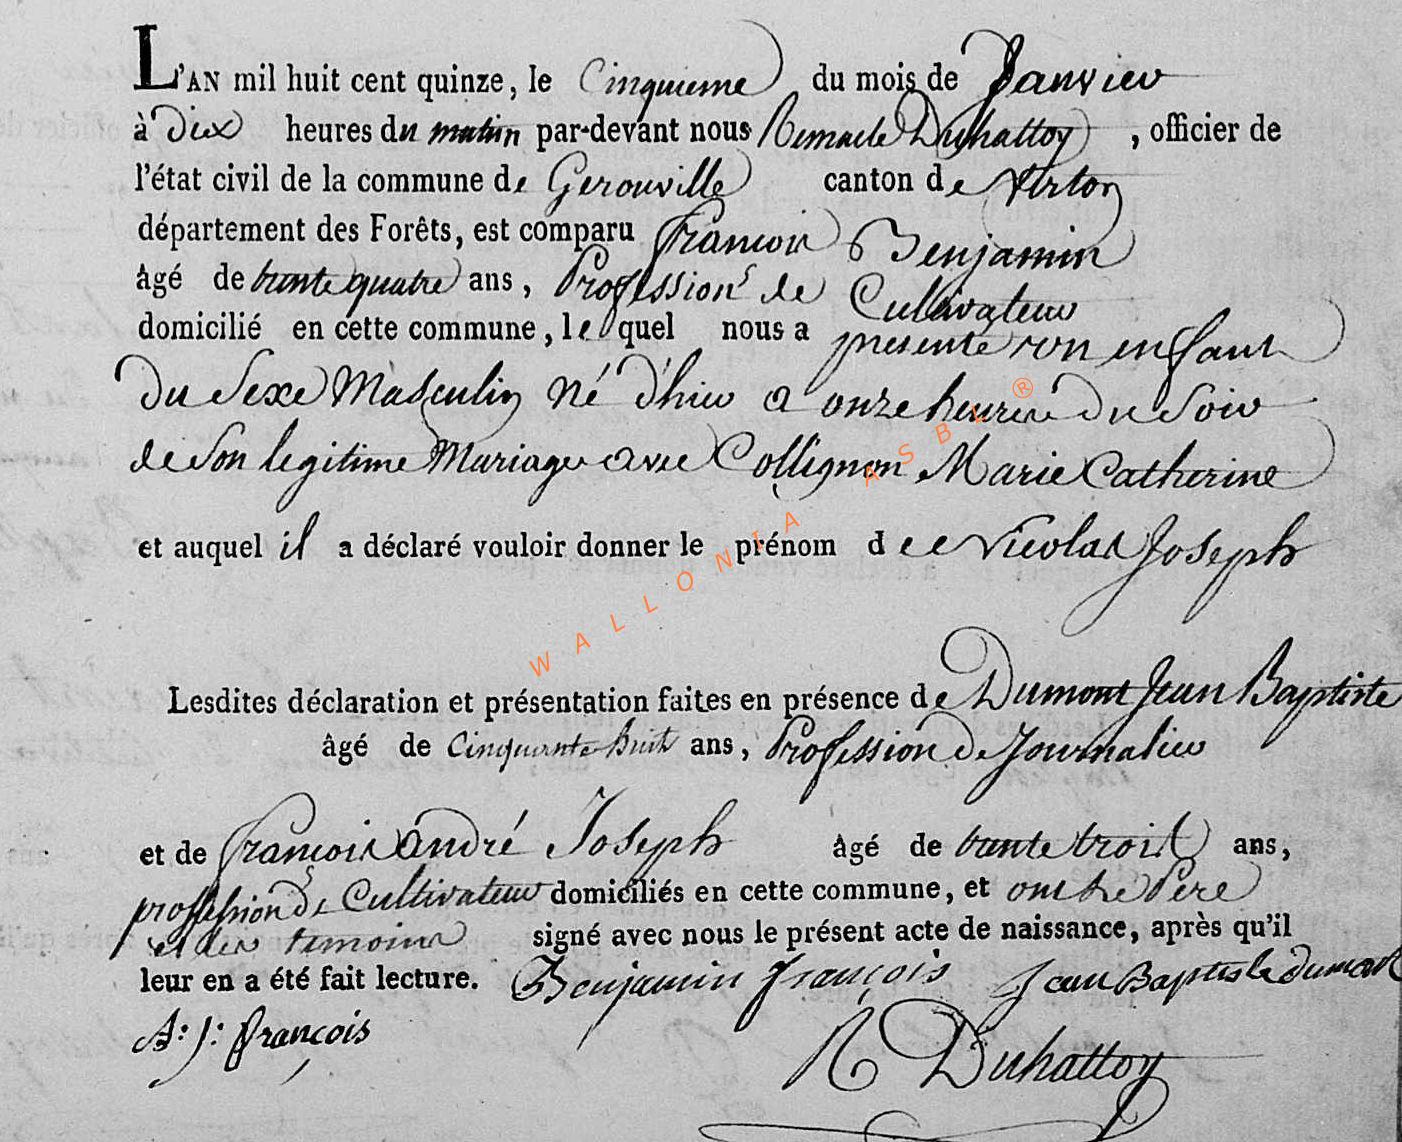 L'AN mil huit cent quinze, le Cinquieme du mois de Janvier
à dix heures du matin par-devant nous Remacle Duhattoy, officier de
l'état civil de la commune de Gerouville canton de Virton
département des Forêts, est comparu francois Benjamin
âgé de trente quatre ans, Profession de Cultivateur
domicilié en cette commune, lequel nous a presenté son enfant
du Sexe Masculin né d'hier a onze heures du Soir
de Son legitime Mariage avec Collignon Marie Catherine
et auquel il a déclaré vouloir donner le prénom de Nicolas Joseph
Lesdites déclaration et présentation faites en présence de Dumont Jean Baptiste
âgé de Cinquante huit ans, Profession de Journalier
et de françois andré Joseph âgé de trente trois ans,
profession de Cultivateur domiciliés en cette commune, et ont le Pere
et les temoins signé avec nous le présent acte de naissance, après qu'il
leur en a été fait lecture. Benjamin françois Jean Baptiste dumont
A: J: françois
R Duhattoy
WALLONIA ASBL ®